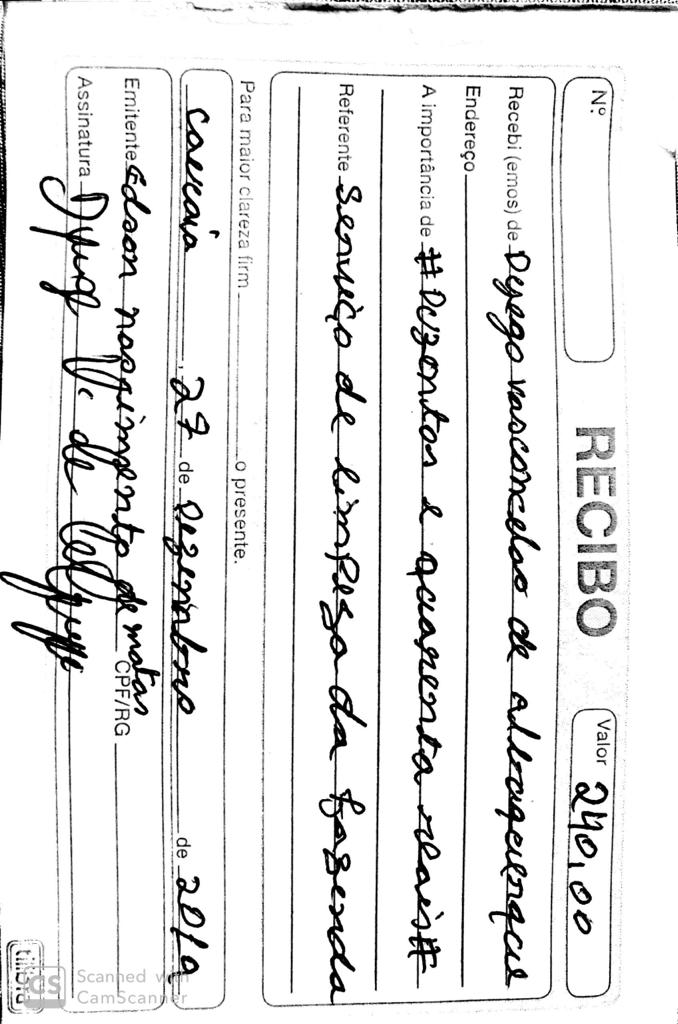 Nº
RECIBO
Valor 240,00
Recebi (emos) de Dyego vasconcelos de albuquerque
Endereço
A importância de # Duzentos e quarenta reais #
Referente Serviço de limpeza da fazenda
Para maior clareza firm o presente.
caucaia, 27 de Dezembro de 2019
Emitente Edson nascimento de matos CPF/RG
Assinatura
tilibra
CS Scanned with CamScanner